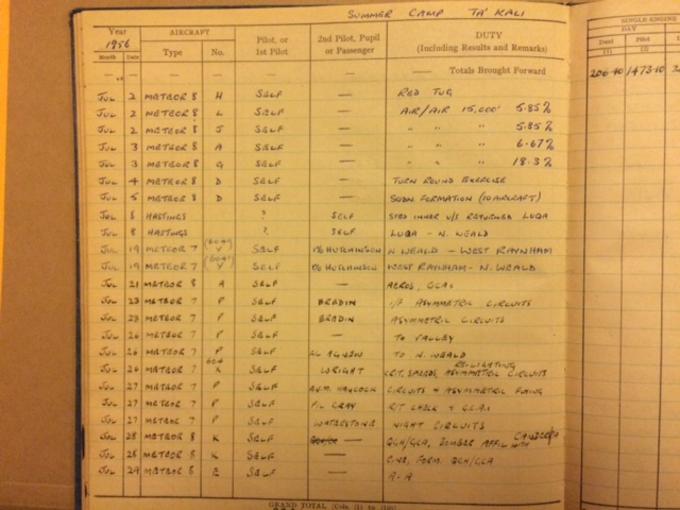 SUMMER CAMP TA' KALI
Year 1956 AIRCRAFT Pilot, or 1st Pilot 2nd Pilot, Pupil or Passenger DUTY (Including Results and Remarks)
Month Date Type No.
SINGLE-ENGINE
DAY
Dual Pilot
(1) (2)
— — — — — — Totals Brought Forward 206·40 1473·10
JUL 2 METEOR 8 H SELF — RED TUG
JUL 2 METEOR 8 L SELF — AIR/AIR 15,000' 5.85%
JUL 2 METEOR 8 J SELF — " " 5.85%
JUL 3 METEOR 8 A SELF — " " 6.67%
JUL 3 METEOR 8 G SELF — " " 18.3%
JUL 4 METEOR 8 D SELF — TURN ROUND EXERCISE
JUL 5 METEOR 8 D SELF — SQDN FORMATION (10 AIRCRAFT)
JUL 8 HASTINGS ? SELF INNER U/S RETURNED LUQA
JUL 8 HASTINGS ? SELF LUQA - N. WEALD
JUL 19 METEOR 7 Y SELF HUTCHINSON N WEALD - WEST RAYNHAM
JUL 19 METEOR 7 Y SELF HUTCHINSON WEST RAYNHAM - N. WEALD
JUL 21 METEOR 8 A SELF — AEROS, GCAs
JUL 23 METEOR 7 P SELF BRADIN I/F ASYMMETRIC CIRCUITS
JUL 23 METEOR 7 P SELF BRADIN ASYMMETRIC CIRCUITS
JUL 26 METEOR 7 P SELF — TO VALLEY
JUL 26 METEOR 7 P SELF AGNEW TO N. WEALD
JUL 26 METEOR 7 604 X SELF WRIGHT CRIT. SPEEDS, RELIGHTING ASYMMETRIC CIRCUITS
JUL 27 METEOR 7 P SELF CIRCUITS + ASYMMETRIC FLYING
JUL 27 METEOR 7 P SELF GRAY R/T CHECK + GCAs
JUL 27 METEOR 7 P SELF WATERSTONE NIGHT CIRCUITS
JUL 28 METEOR 8 K SELF — QGH/GCA, BOMBER AFFIL WITH CANBERRA
JUL 28 METEOR 8 K SELF — FORM. QGH/GCA
JUL 29 METEOR 8 E SELF — A-A
GRAND TOTAL